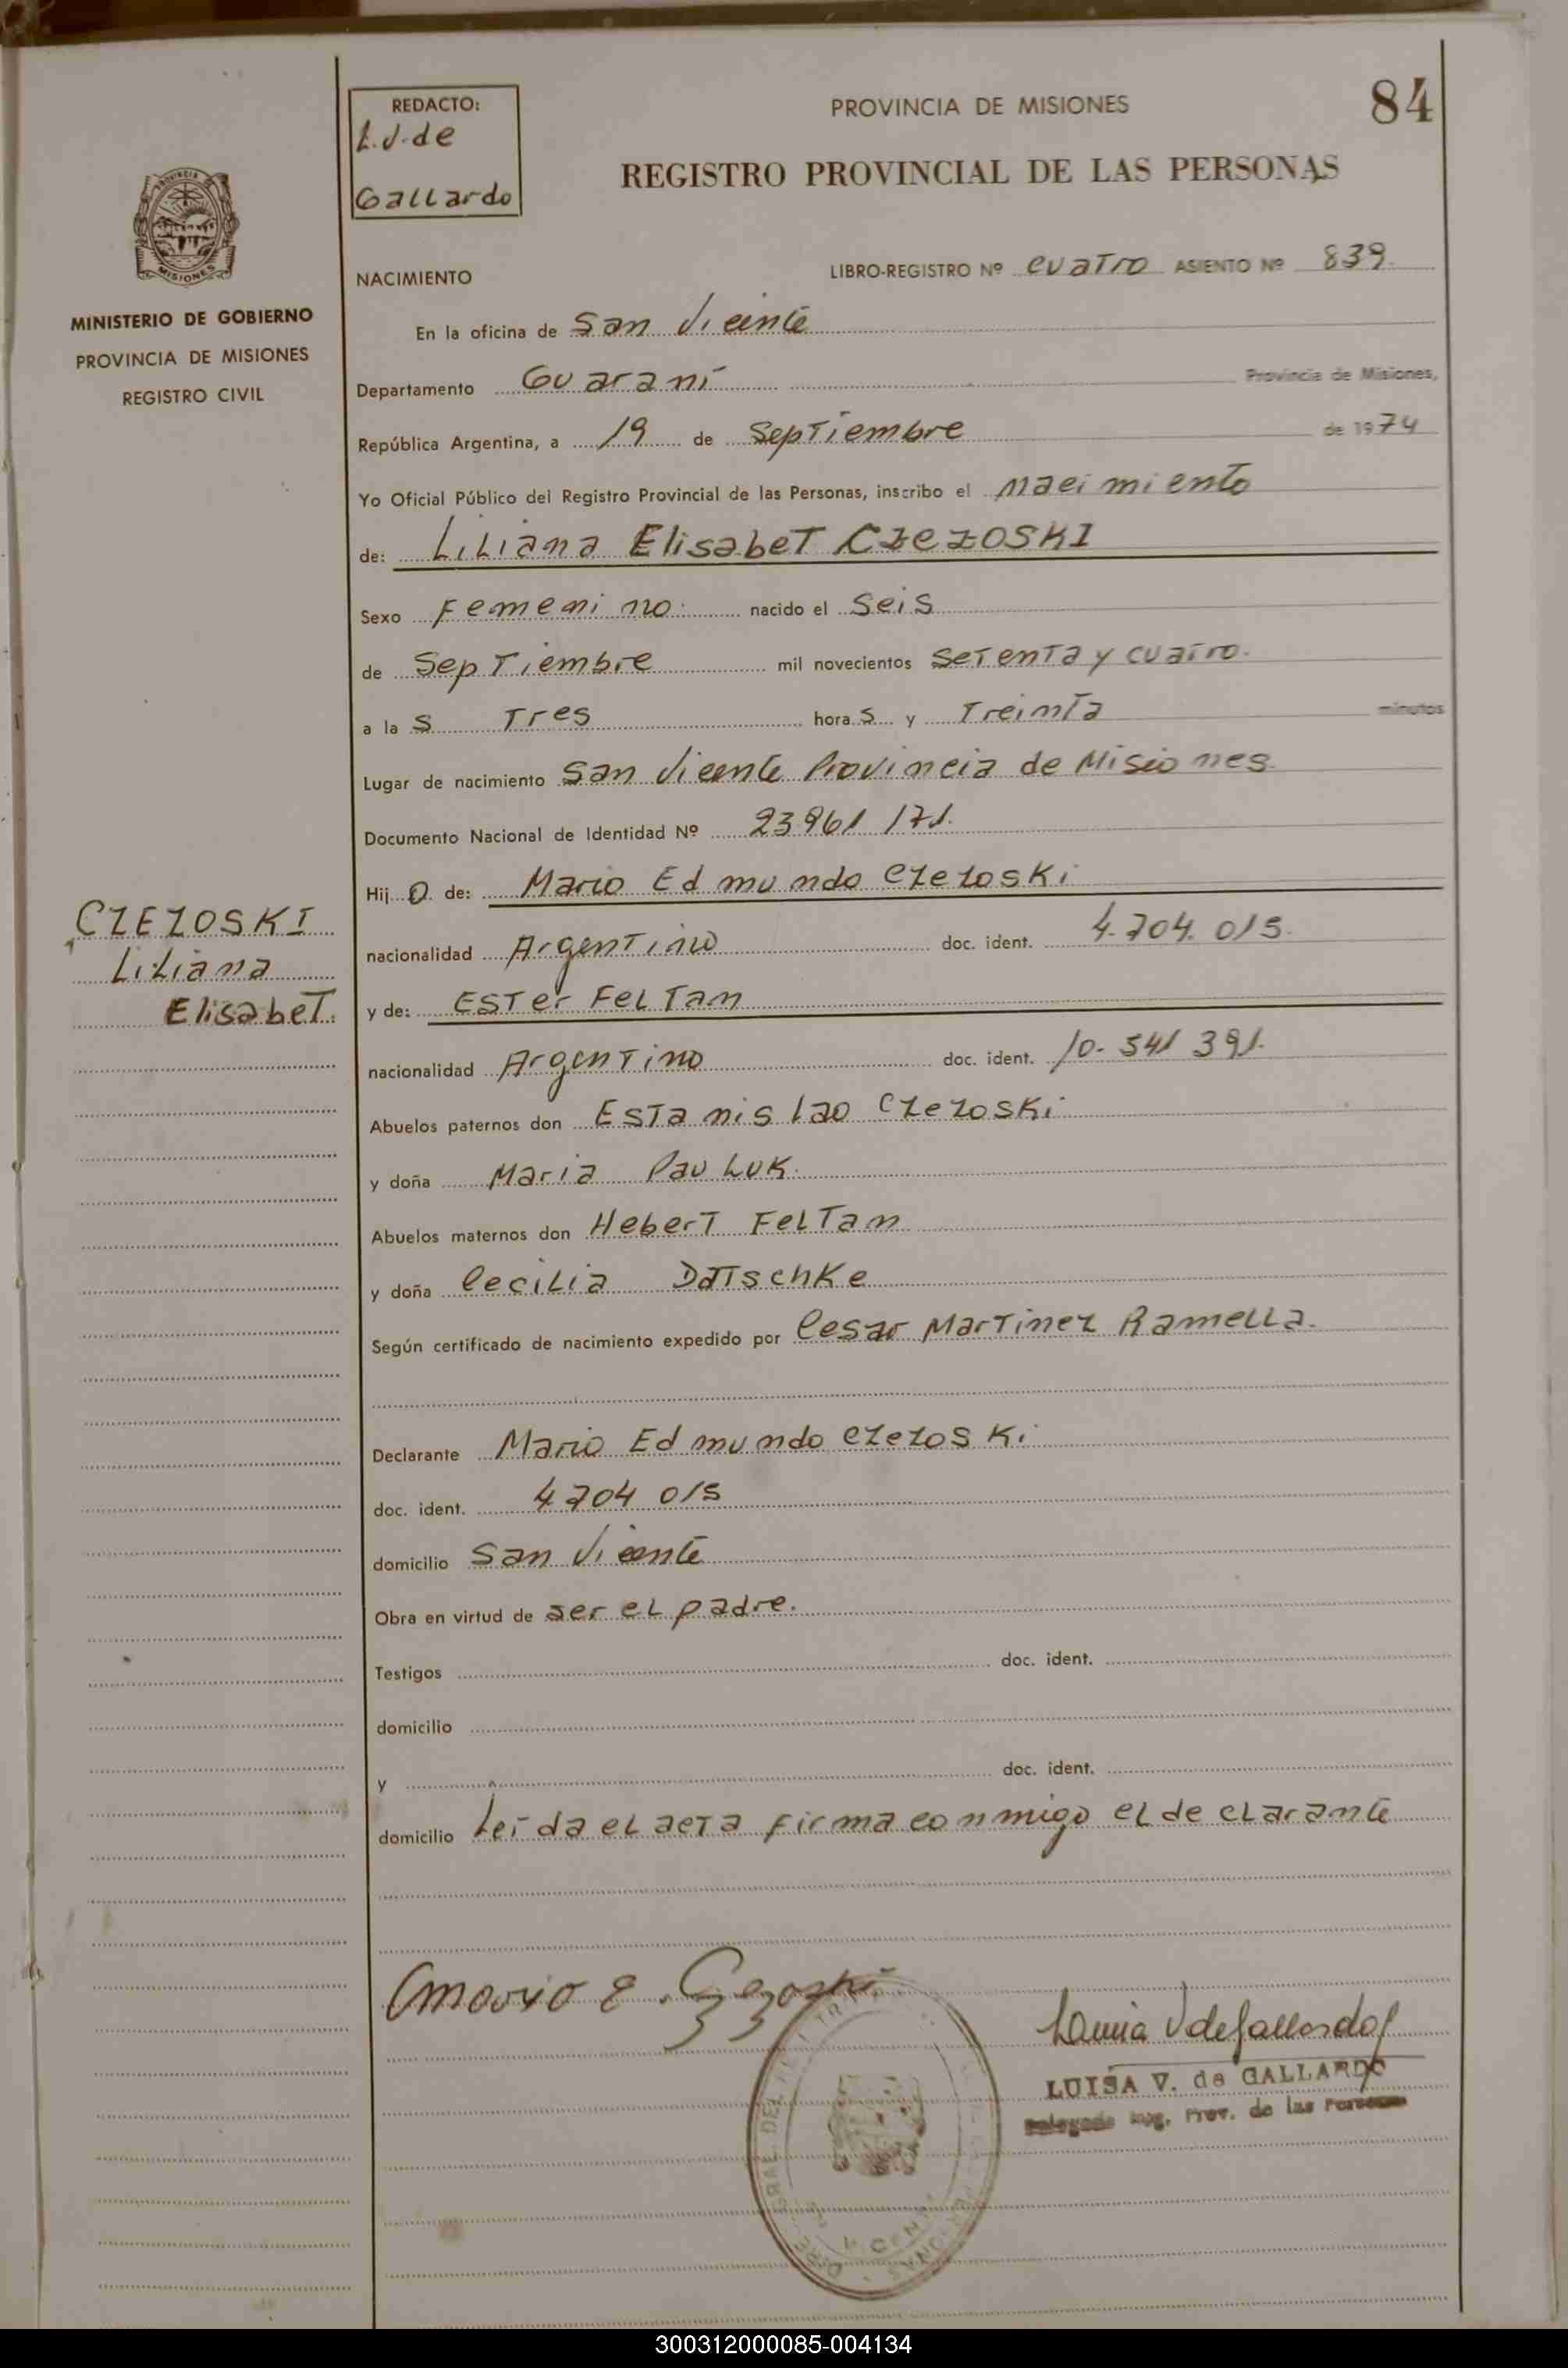 84
REDACTO:
L.V. de
Gallardo
PROVINCIA DE MISIONES
REGISTRO PROVINCIAL DE LAS PERSONAS
PROVINCIA
MISIONES
MINISTERIO DE GOBIERNO
PROVINCIA DE MISIONES
REGISTRO CIVIL
NACIMIENTO
LIBRO-REGISTRO Nº cuatro ASIENTO Nº 839
En la oficina de San Vicente
Departamento Guaraní Provincia de Misiones,
República Argentina, a 19 de Septiembre de 1974
Yo Oficial Público del Registro Provincial de las Personas, inscribo el nacimiento
de: Liliana Elisabet CZEZOSKI
Sexo Femenino. nacido el Seis
de Septiembre mil novecientos setenta y cuatro.
a la s Tres hora s y Treinta minutos
Lugar de nacimiento San Vicente Provincia de Misiones
Documento Nacional de Identidad Nº 23961 171.
Hij a de: Mario Edmundo Czezoski
nacionalidad Argentino doc. ident. 4.704.015.
y de: Ester Feltan
nacionalidad Argentino doc. ident. 10.541 391.
Abuelos paternos don Estanislao Czezoski
y doña Maria Pauluk.
Abuelos maternos don Hebert Feltan
y doña Cecilia Datschke
Según certificado de nacimiento expedido por Cesar Martinez Ramella.
Declarante Mario Edmundo Czezoski
doc. ident. 4704 015
domicilio San Vicente
Obra en virtud de ser el padre.
Testigos doc. ident.
domicilio
y doc. ident.
domicilio Leída el acta firma conmigo el declarante
CZEZOSKI
Liliana
Elisabet.
Mario E. Czezoski
Luisa V de Gallardo
LUISA V. de GALLARDO
Delegada Reg. Prov. de las Personas
300312000085-004134